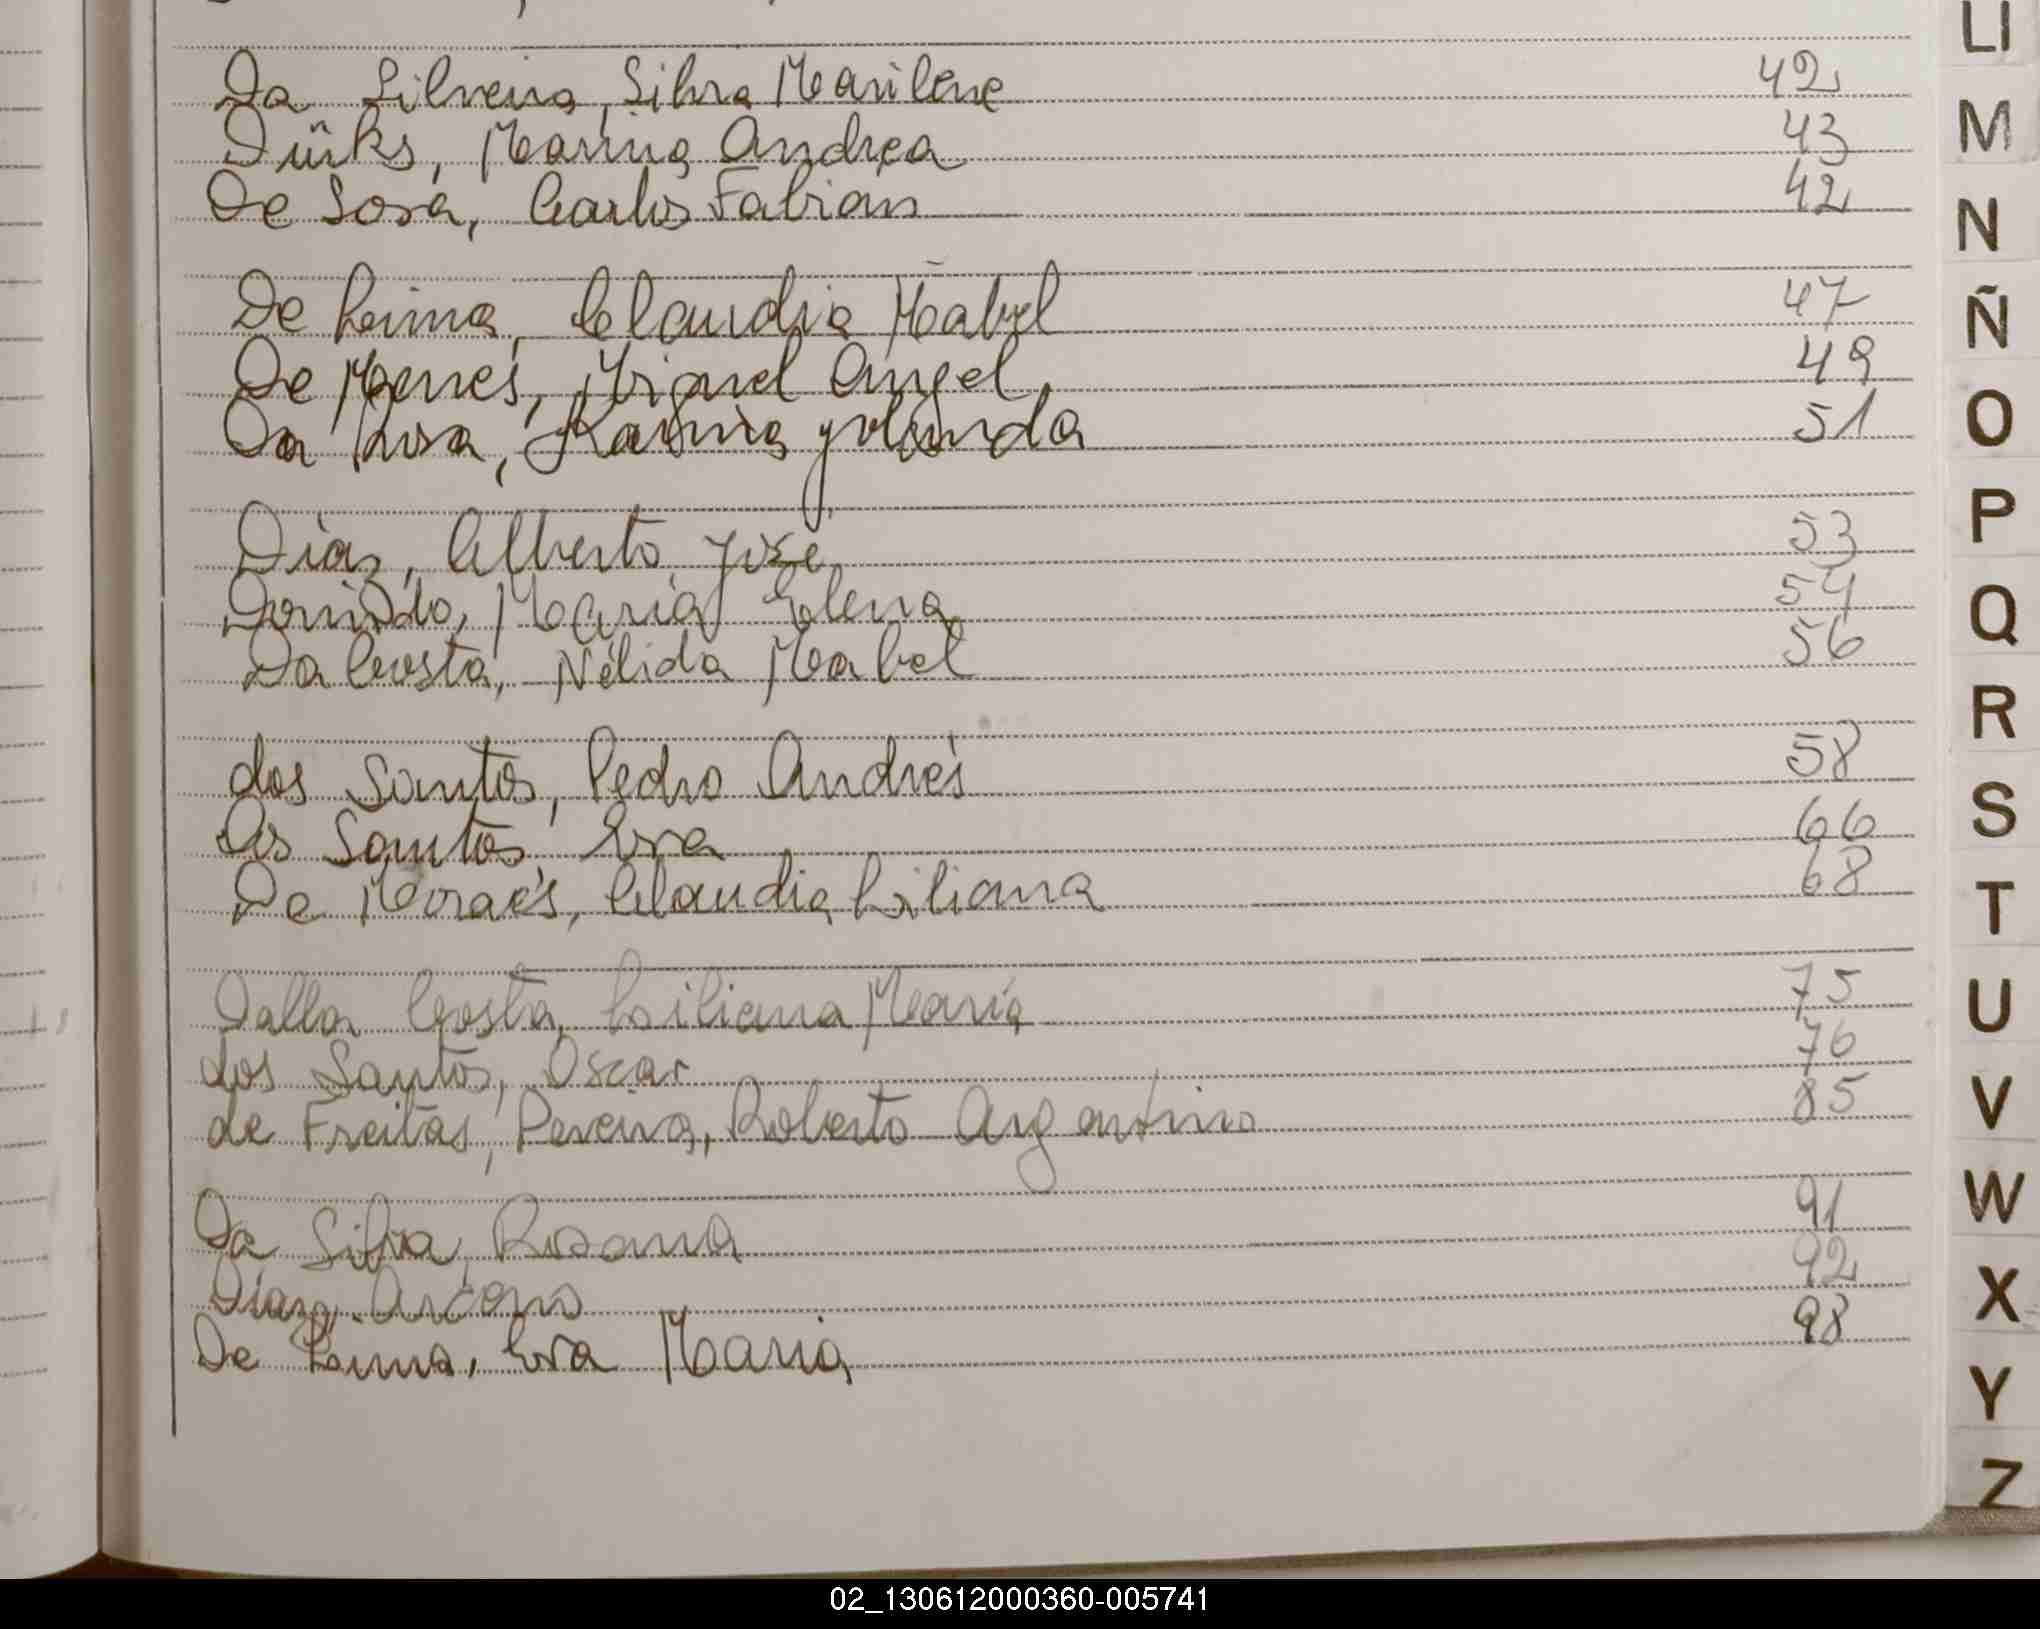 Da Silveira, Silvia Marilene 42
Dürks, Marina Andrea 43
De Sosa, Carlos Fabian 42
De Lima, Claudia Mabel 47
De Menes, Miguel Angel 49
Da Rosa, Karina Yolanda 51
Días, Alberto Jose 53
María Elena 54
Da Costa, Nélida Mabel 56
dos Santos, Pedro Andrés 58
Dos Santos Eva 66
De Moraes, Claudia Liliana 68
Dalla Costa, Liliana María 75
dos Santos, Oscar 76
de Freitas, Pereira, Roberto Argentino 85
Da Silva, Rosana 91
Díaz, 92
De Lima, Eva Maria 98
LI
M
N
Ñ
O
P
Q
R
S
T
U
V
W
X
Y
Z
02_130612000360-005741